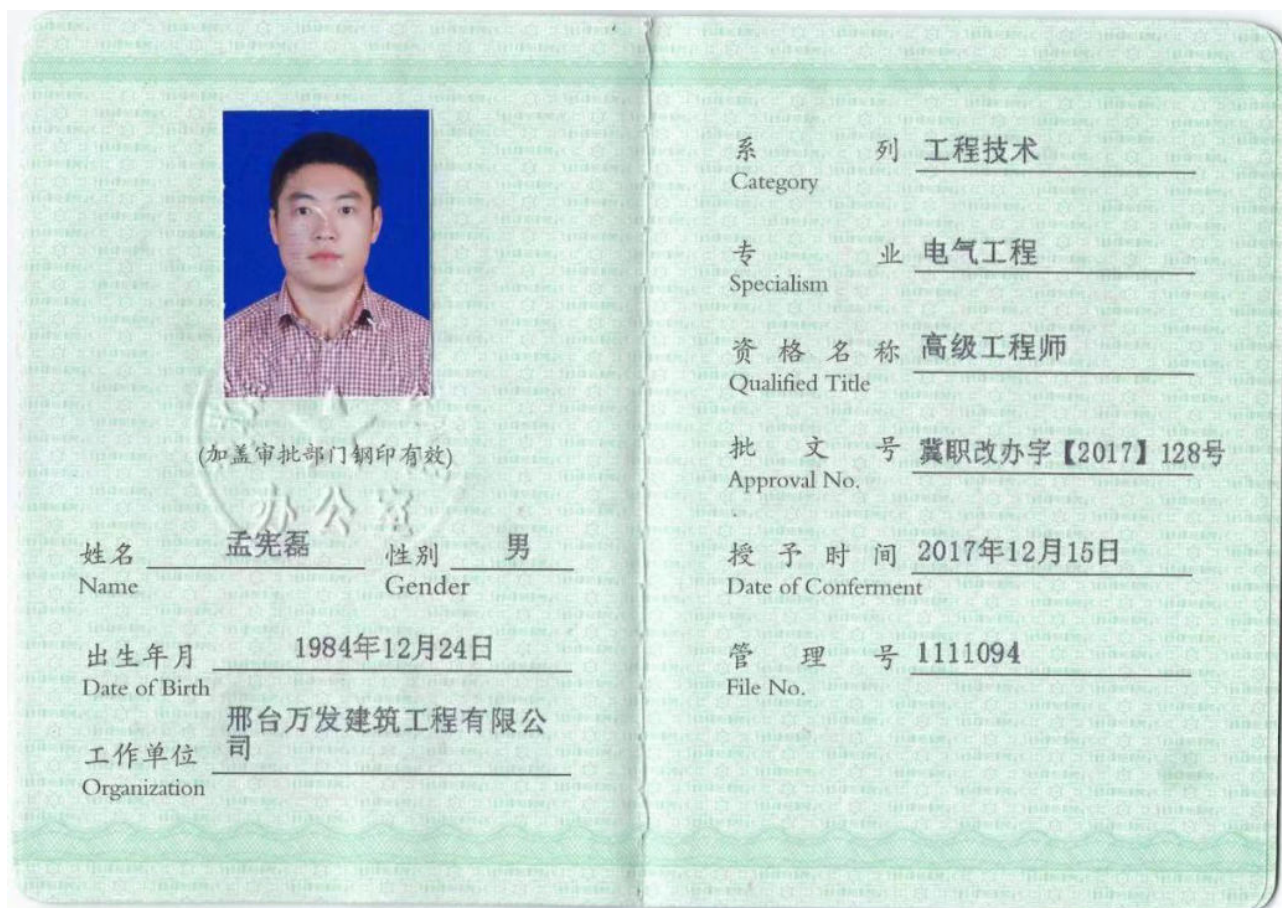 (加盖审批部门钢印有效)
办公室
姓名 孟宪磊 性别 男
Name Gender
出生年月 1984年12月24日
Date of Birth
邢台万发建筑工程有限公
工作单位 司
Organization
系列 工程技术
Category
专业 电气工程
Specialism
资格名称 高级工程师
Qualified Title
批文号 冀职改办字【2017】128号
Approval No.
授予时间 2017年12月15日
Date of Conferment
管理号 1111094
File No.